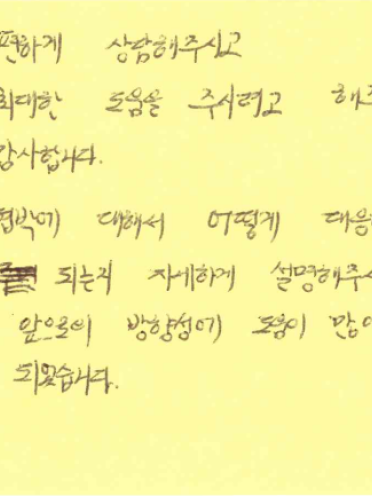 편하게 상담해주시고
최대한 도움을 주시려고 해주
감사합니다.
협박에 대해서 어떻게 대응
되는지 자세하게 설명해주시
앞으로의 방향성에 도움이 많이
되었습니다.